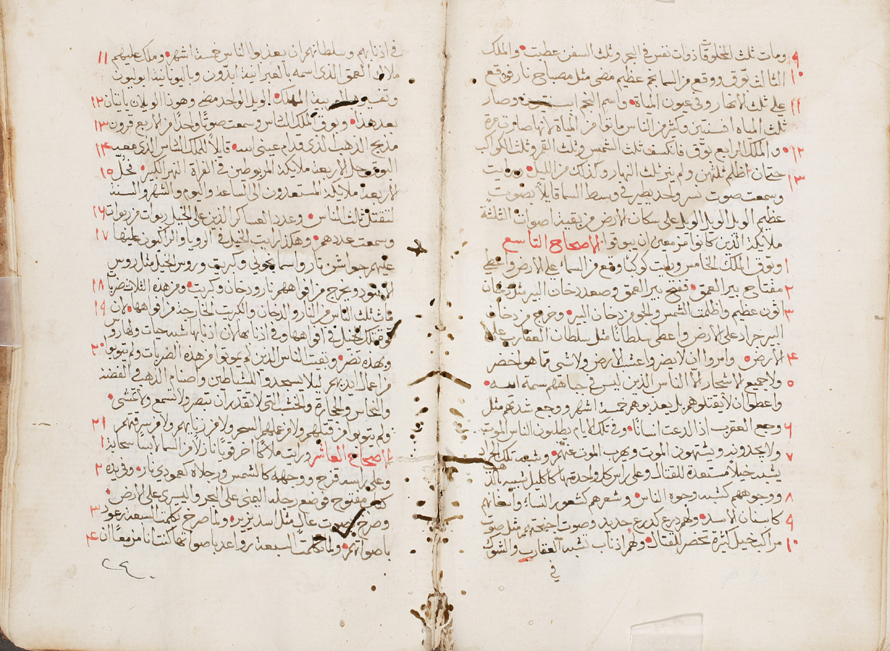 ٩ ومات ثلث المخلوقات ذوات نفس في البحر وثلث السفن عطبت والملك
١٠ الثالث بوق ووقع من السما نجم عظيم مضي مثل مصباح نار وقع
١١ علي ثلث الانهار وفي عيون المياة واسم النجم افسنتين وصار
ثلث المياه افسنتين وكثير من الناس ماتوا من المياة لانها صارت مرة
١٢ والملاك الرابع بوق فانكسف ثلث الشمس وثلث القمر وثلث الكواكب
حتي ان اظلم ثلثهن ولم ينير ثلث النهار وكذلك من الليل ورايت
١٣ وسمعت صوت نسر واحد يطير في وسط السما قايلا بصوت
عظيم الويل الويل الويل علي سكان الارض من بقية اصوات الثلثة
ملايكة الذين كانوا مزمعين ان يبوقوا الاصحاح التاسع
١ وبوق الملك الخامس ورايت كوكبا وقع من السماء علي الارض واعطي
٢ مفتاح بير العمق ففتح بير العمق وصعد دخان البير مثل دخان
٣ اتون عظيم واظلمت الشمس والجو من دخان البير وخرج من دخان
البير جراد علي الارض واعطي سلطانا مثل سلطان العقارب علي
٤ الارض وامروا ان لا يضروا عشب الارض ولا شي ما هو اخضر
٥ ولا جميع الاشجار الا الناس الذين ليس في جباههم سمة الله
واعطوا ان لا يقتلوهم بل يعذبوهم خمسة اشهر ووجع شدتهم مثل
٦ وجع العقرب اذا لدغت انسانا وفي تلك الايام يطلبون الناس الموت
٧ ولا يجدونه ويشتهون الموت ويهرب الموت عنهم وشبه تلك الجراد
يشبه خيلا مستعدة للقتال وعلي راس كل واحدة منها كاكليل
٨ ووجوههم كشبه وجوه الناس وشعرهم كشعور النساء واسنانهم
٩ كاسنان الاسد وهم درع كدرع حديد وصوت اجنحتهم مثل صوت
١٠ مراكب خيل كثيرة تحضر للقتال ولهم اذناب تشبه العقارب والشوك
في
١١ في اذنابهم وسلطانهم ان يعذبوا الناس خمسة اشهر وملك عليهم
ملاك العمق الذي اسمه بالعبرانية ابدون وباليونانية ابوليون
١٢ وتفسيره بالعربية المهلك الويل الواحد مضي وهوذا الويلان ياتيان
١٣ بعد هذا وبوق الملك السادس وسمعت صوتا واحدا من الاربع قرون
١٤ مذبح الذهب الذي قدام عيني الله قايلا للملك السادس الذي معه
١٥ البوق حل الاربعة ملايكة المربوطين في الفراة النهر الكبير فحل
الاربعة ملايكة المستعدون الي الساعة واليوم والشهر والسنة
١٦ لتقتل ثلث الناس وعدد العساكر الذين علي الخيل ربوات من ربوات
١٧ وسمعت عددهم وهكذا رايت الخيل في الرويا والراكبون عليها
عليهم جواشن نار واسمانجوني وكبريت وروس الخيل مثل روس
١٨ الاسود ويخرج من افواههم نار ودخان وكبريت ومن هذه الثلث ضربات
١٩ مات ثلث الناس من النار والدخان والكبريت الخارجة من افواهها لان
قوة تلك الخيل في افواهها وفي اذنابها لان اذنابها تشبه حيات ولها روس
٢٠ وبهذه تضر وبقيت الناس الذين لم يموتوا من هذه الضربات ولم يتوبوا
من اعمال ايديهم ليلا يسجدوا للشياطين واصنام الذهب والفضة
والنحاس والحجارة والخشب التي لا تقدر ان تبصر ولا تسمع ولا تمشي
٢١ ولم يتوبوا من قتلهم ولا من عملهم السحر ولا من زناهم ولا من سرقتهم
١ الاصحاح العاشر ورايت ملاكا اخر قويا نازلا من السما لابسا سحابة
٢ وعلي راسه قوس قزح ووجهه كالشمس ورجلاه كعمودي نار وفي يده
كتاب مفتوح فوضع رجله اليمني علي البحر واليسري علي الارض
٣ وصرخ بصوت عال مثل اسد يزير ولما صرخ تكلمت السبعة رعود
٤ باصواتهم ولما تكلمت السبعة رواعد باصواتها كنت انا مزمعا ان